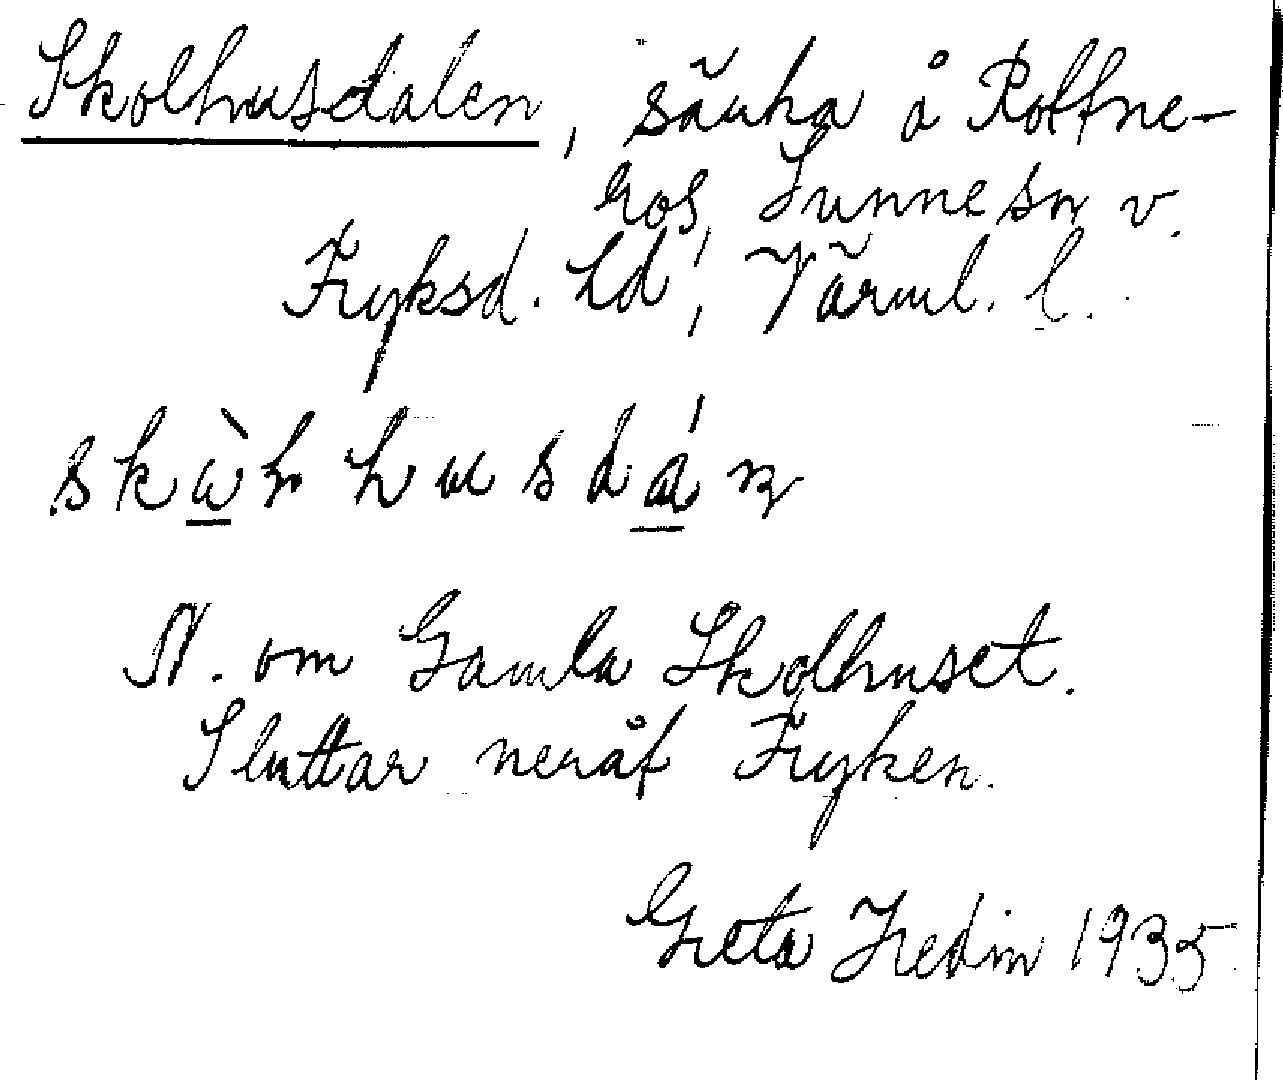 Skolhusdalen, sänka å Rottne-
ros, Sunne sn v.
Fryksd. hd, Värml. l.
skὼhhusdάn
N. om Gamla Skolhuset.
Sluttar neråt Fryken.
Greta Hedin 1935